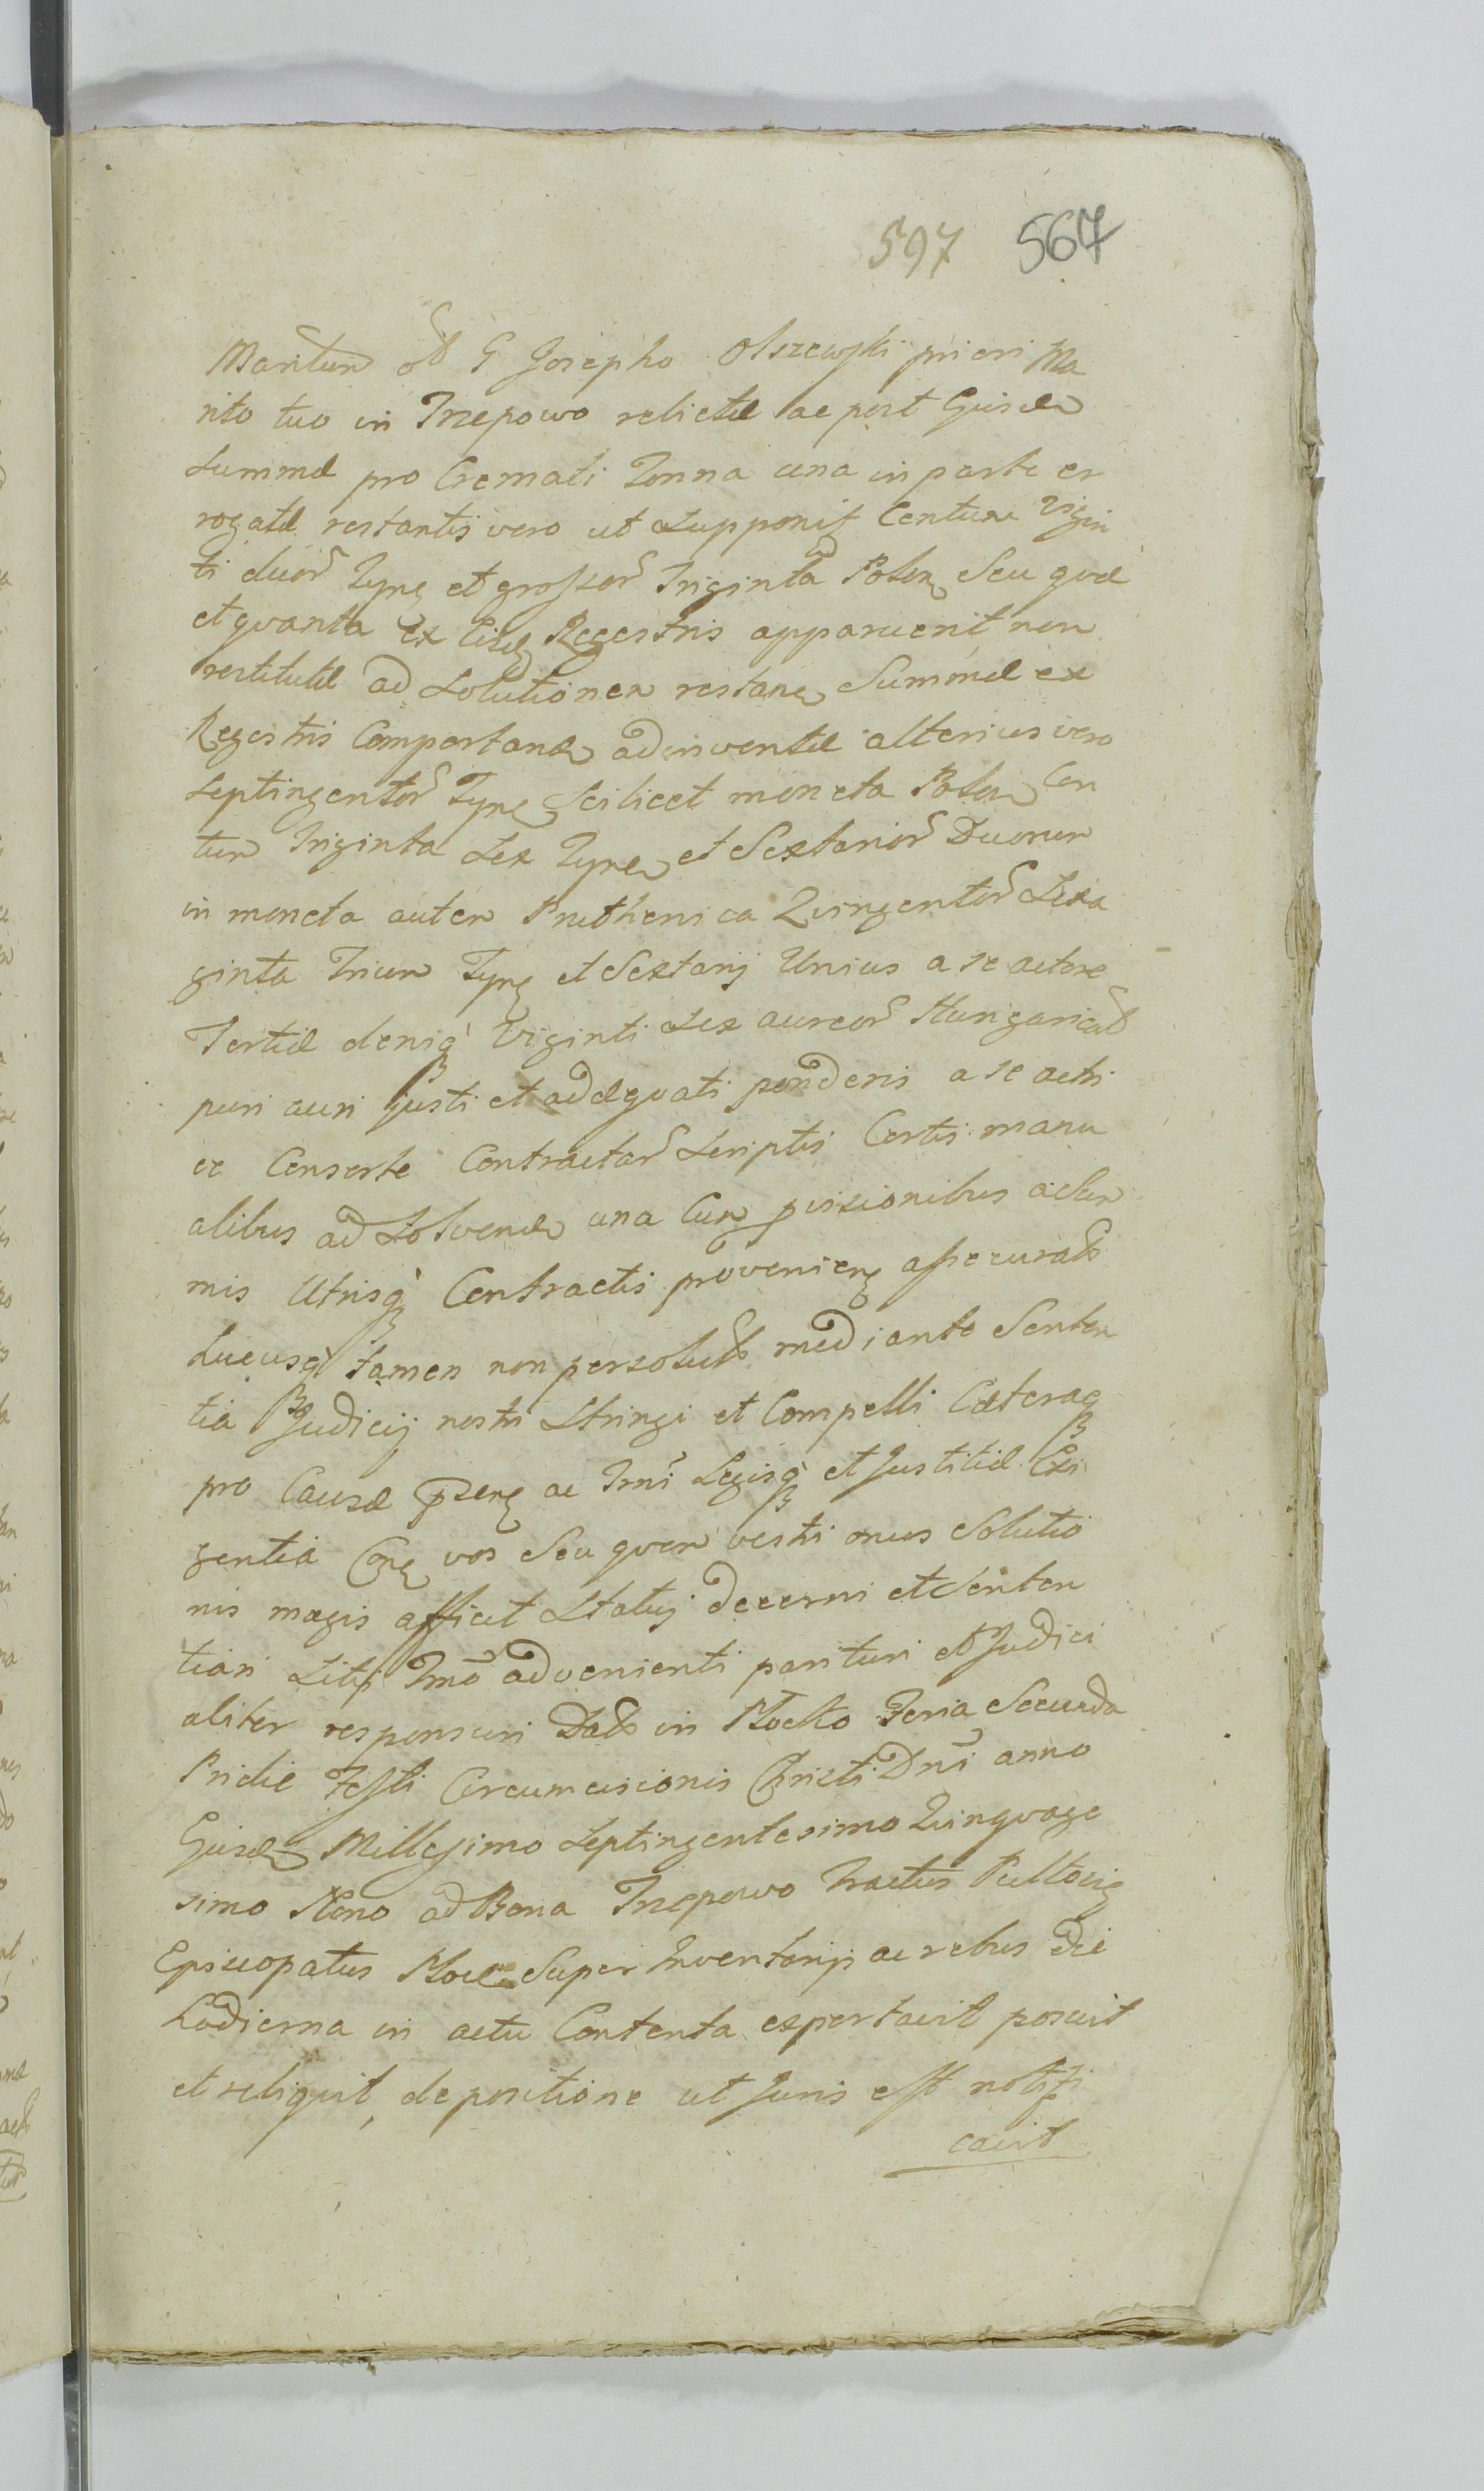 597 567
Maritum ab G Josepho Olszewski priori Ma
rito tuo in Trzepowo relictæ ac post Ejusd
Summæ pro Cremati Tonna una in parte er
rogatæ restantis vero ut Supponit Centum Vigin
ti duor Tynf et grossor Triginta Polon Seu qvæ
et qvanta ex Eisd Regestris apparuerit non
restitutæ ad Solutionem restan Summæ ex
Regestris Comportand adinventæ alterius vero
Septingentor Tynf Scilicet moneta Polon Cen
tum Triginta Sex Tynf et Sextarior Duorum
in moneta autem Pruthenica Qvingentor Sexa
ginta Trium Tynf et Sextarij Unius a se actore
Tertiæ deniq Viginti Sex aureor Hungarical
puri auri justi et adæqvati ponderis a se actri
ce Consorte Contractar Scriptis Certis manu
alibus ad Solvend una Cum provisionibus a Sum
mis Utrisq Contractis provenien assecurat
hucusq tamen non persolut mediante Senten
tia Judicij nostri Stringi et Compelli Cæteraq
pro Causæ præsen ac Tmi Legisq et Justitiæ Exi
gentia Con vos Seu qvem vestri onus Solutio
nis magis afficit Statuj decerni et Senten
tiari Litis Tmo advenienti parituri et Judici
aliter responsuri Dat in Plocko Feria Secunda
Pridie Festi Circumcisionis Christi Dni anno
Ejusd Millesimo Septingentesimo Qvinqvage
simo Nono ad Bona Trzepowo tractus Pultovien
Episcopatus Ploc Super Inventarijs ac rebus die
hodierna in actu Contenta exportavit posuit
et reliquit, depositione ut Juris est notifi
cavit